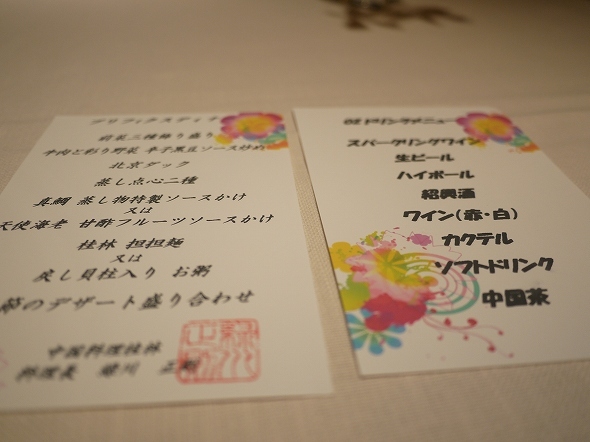 プリフィクスディナ
前菜三種飾り盛り
牛肉と彩り野菜 辛子黒豆ソース炒め
北京ダック
蒸し点心二種
真鯛 蒸し物特製ソースかけ
又は
天使海老 甘酢フルーツソースかけ
桂林 担担麺
又は
戻し貝柱入り お粥
節のデザート盛り合わせ
中国料理桂林
料理長
ドリンクメニュー
スパークリングワイン
生ビール
ハイボール
紹興酒
ワイン(赤・白)
カクテル
ソフトドリンク
中国茶